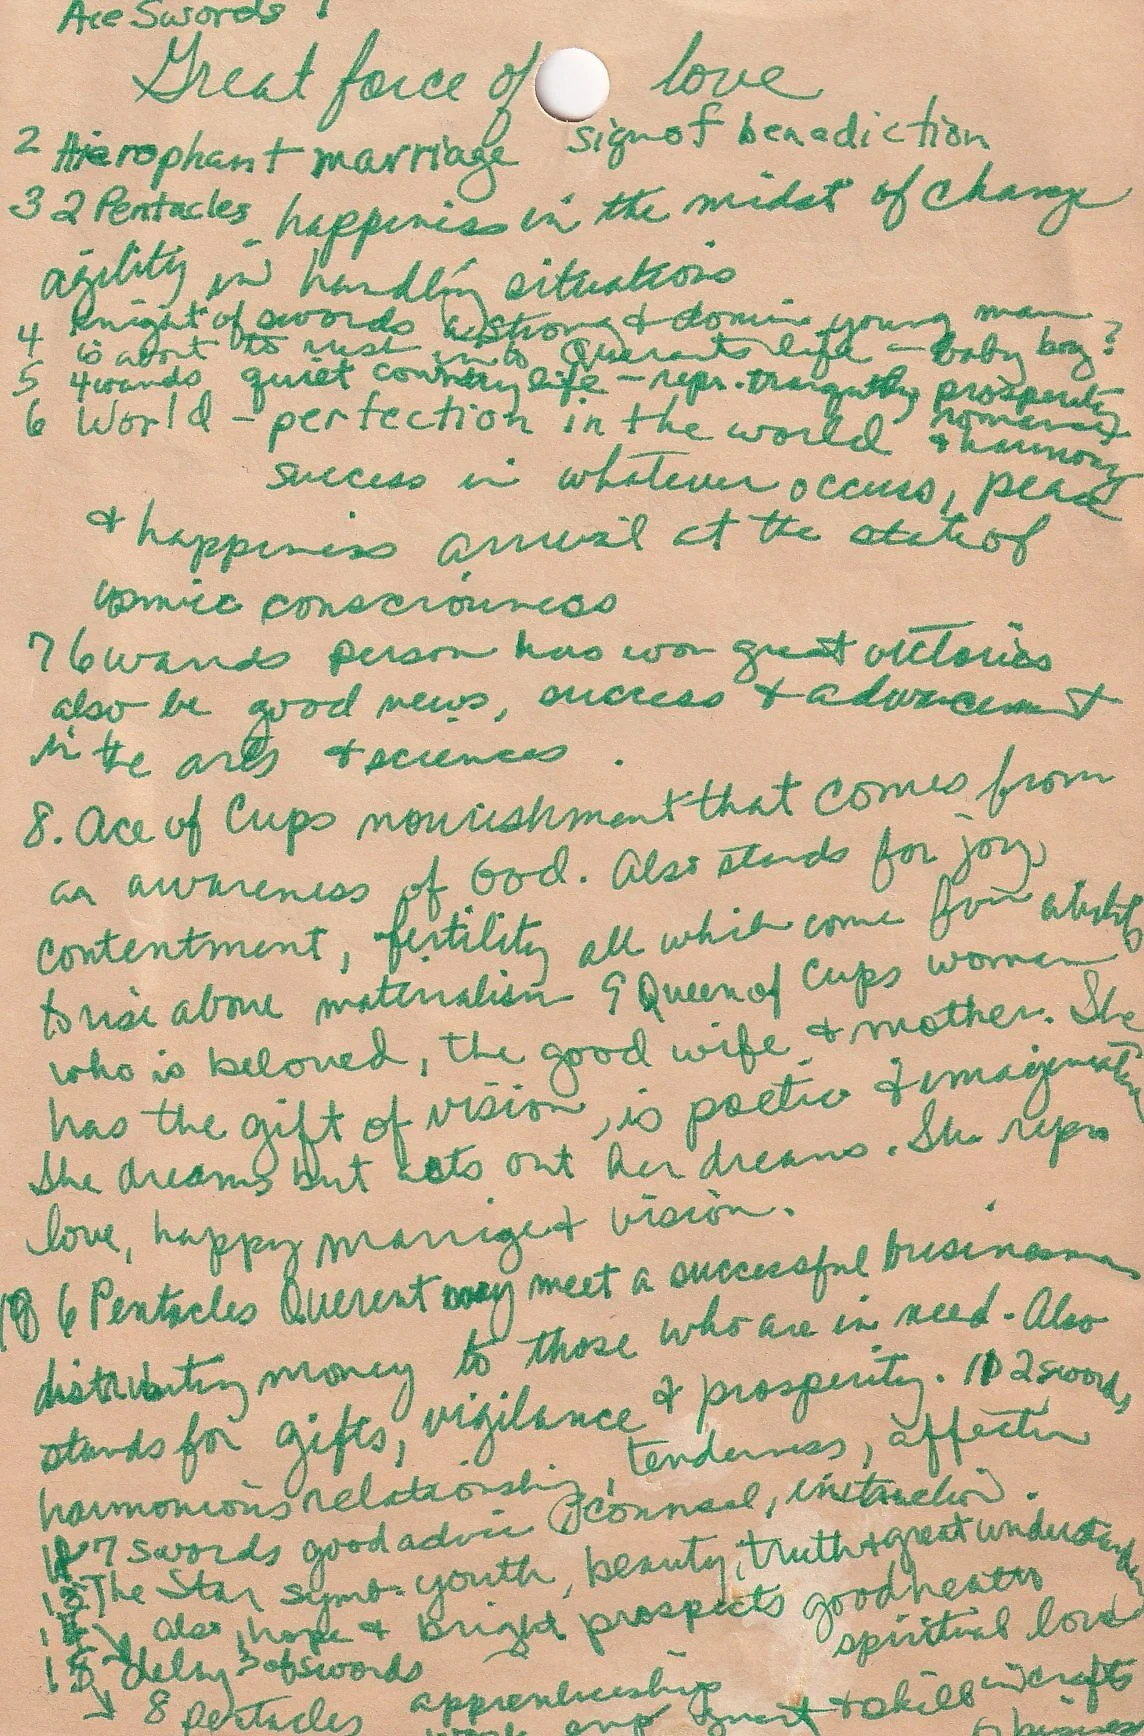 Ace Swords
Great force of love
2 Hierophant marriage sign of benediction
3 2 Pentacles - happiness in the midst of change
agility in handling situations
4 Knight of swords a strong & domin young man
is about to rush into Querants life - baby boy?
5 4 wands quiet country life - repr. tranquility prosperity
6 World - perfection in the world & harmony
success in whatever occurs, peace
& happiness arrival at the state of
cosmic consciousness
7 6 wands person has won great victories
also be good news, success & advancement
in the arts & sciences.
8. Ace of Cups nourishment that comes from
an awareness of God. Also stands for joy,
contentment, fertility all which come from ability
to rise above materialism 9 Queen of Cups woman
who is beloved, the good wife & mother. She
has the gift of vision, is poetic & imaginative
She dreams but acts out her dreams. She reprs
love, happy marriage & vision.
10 6 Pentacles Querent may meet a successful businessman
distributing money to those who are in need. Also
stands for gifts, vigilance & prosperity. 11 2 swords,
harmonious relationship, tenderness, affection
12 7 swords good advice counsel, instruction.
13 The Star symb. youth, beauty, truth & great understanding
14 also, hope & bright prospects good health
spiritual love
15 delay 3 of swords
8 pentacles apprenticeship & skill in crafts
work